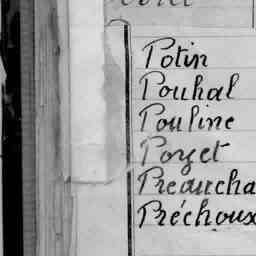 Potin
Pouhal
Pouline
Pozet
Preaucha
Préchoux